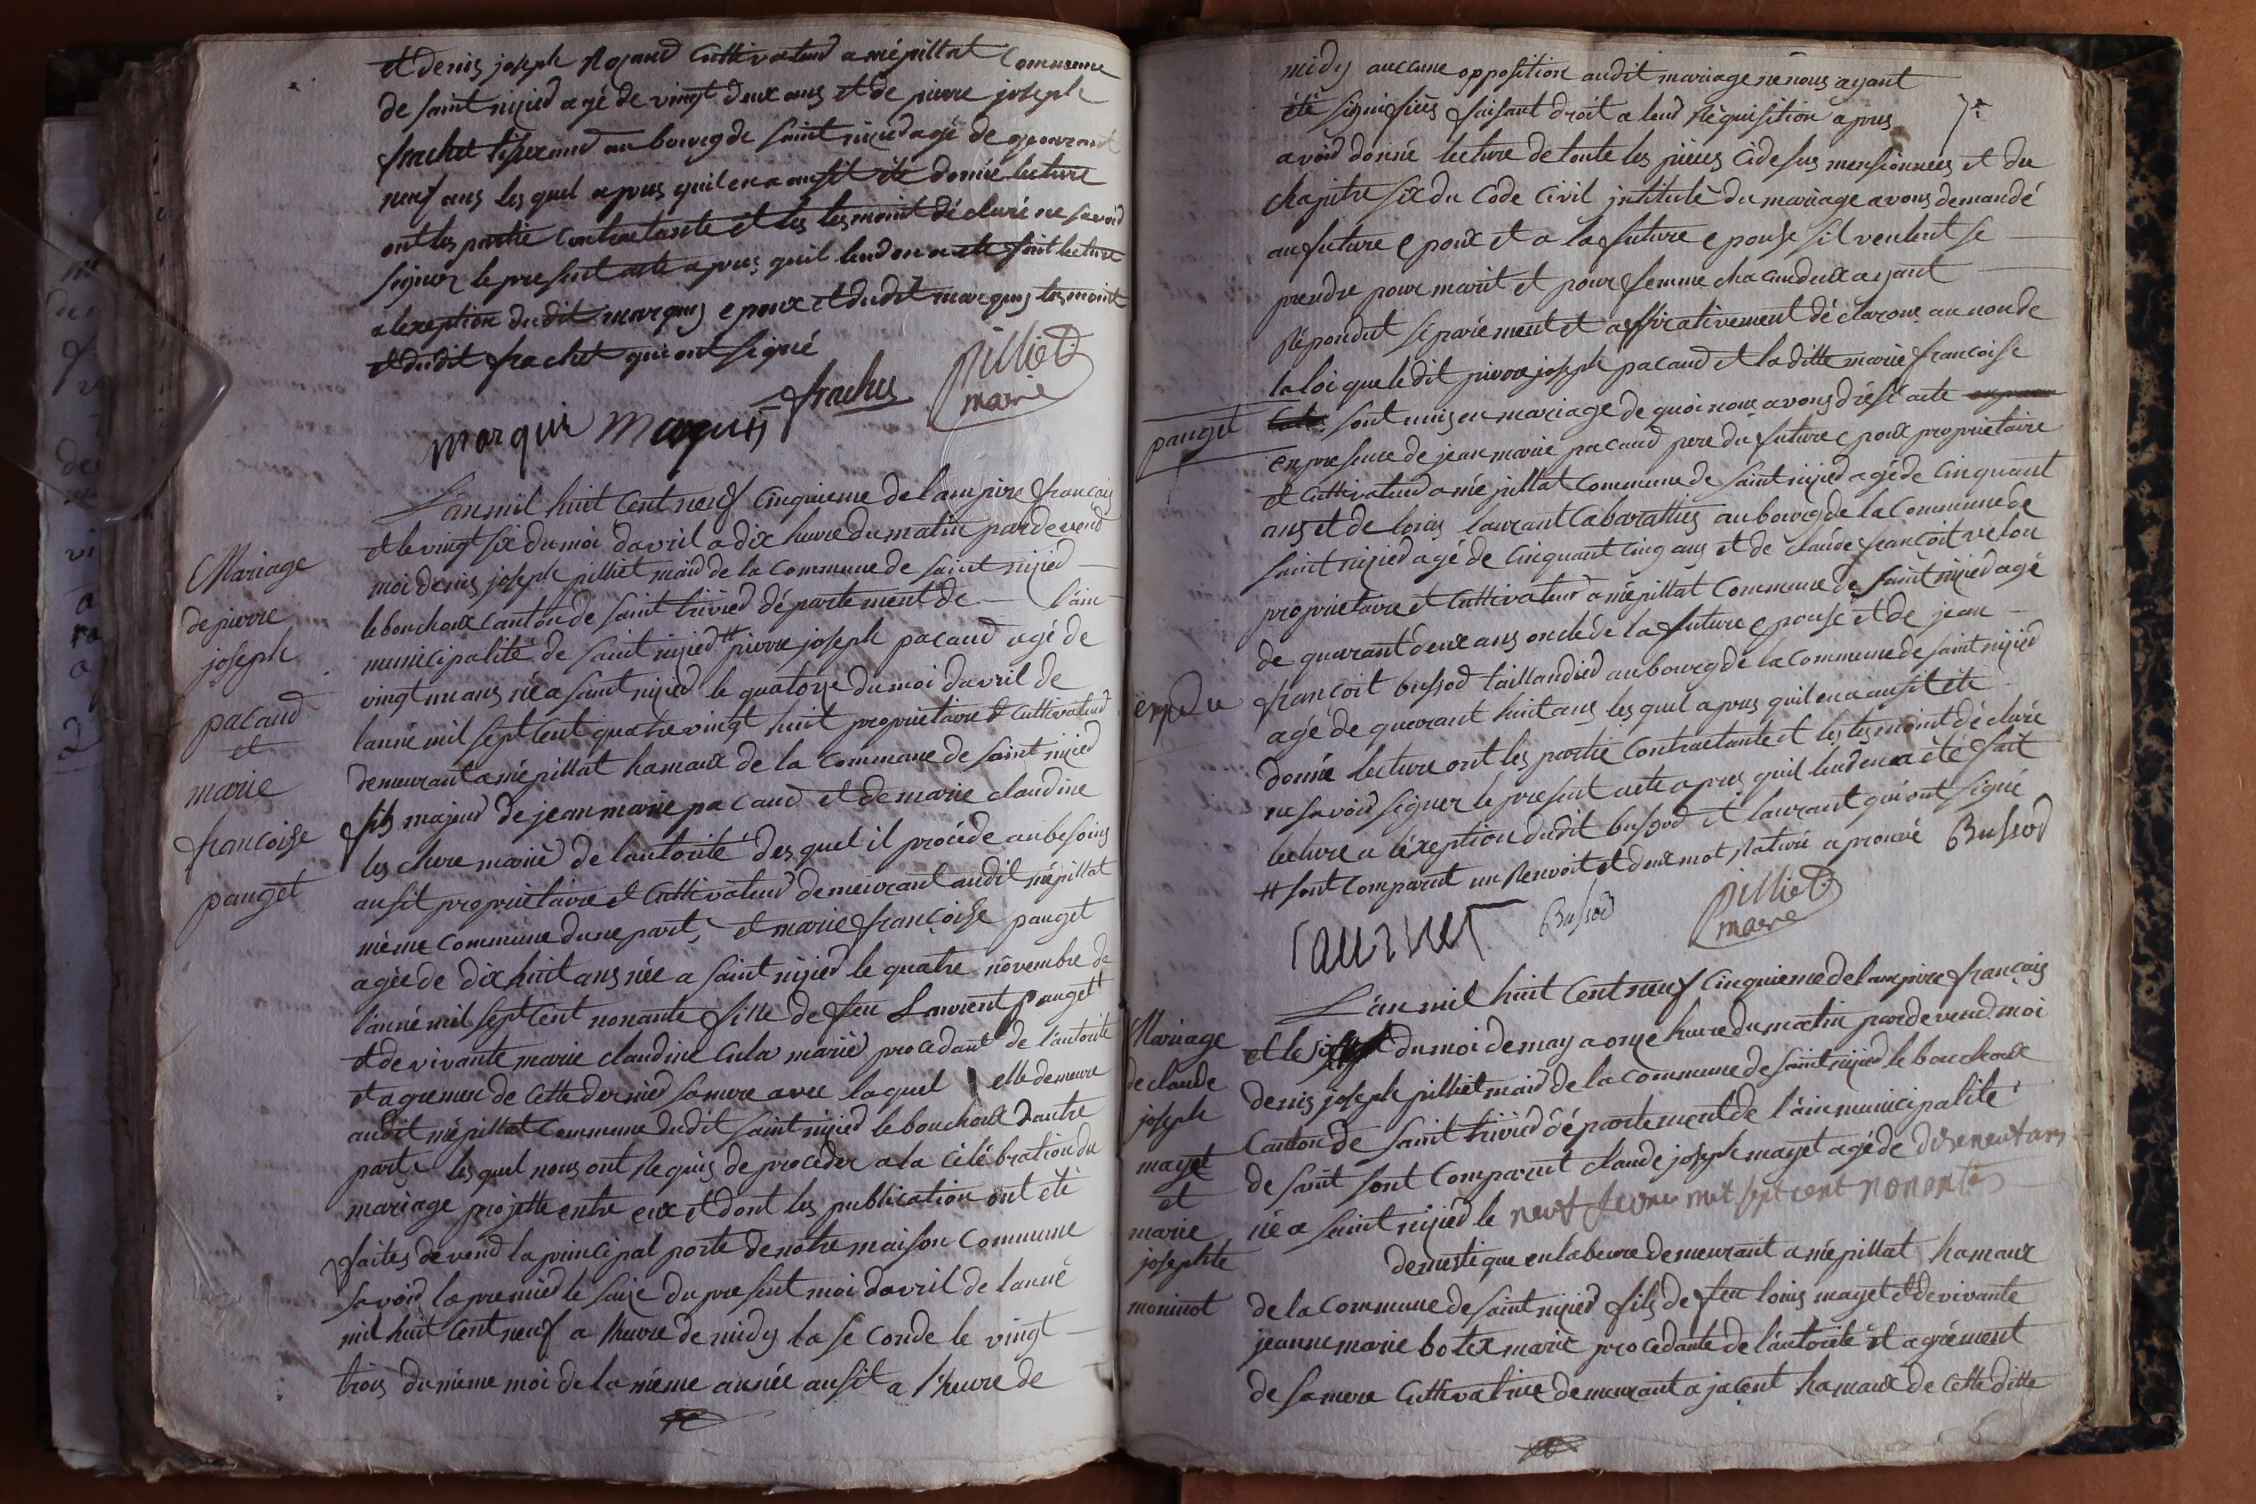 et denis joseph Royaud Cuttivateud a mépillat Commune
de saint nizied agé de vingt deux ans et de pierre joseph
frachet tiserand au bourg de saint nizied agé de quarant
neuf ans les quel apres quil en a ausit été donnée lecture
ont les partie Contractante et les tesmoint déclaré ne savoid
signer le present acte apres quil leud en a ete fait lecture
a lexeption dudit marquis epoux et dudit marquis tesmoint
et dudit frachet qui ont signé
marquis marquis frachet pilliet
maire
L'an mil huit Cent neuf Cinquieme de lampire francais
et le vingt six du moi davril a dix heure du matin pardevend
moi denis joseph pilliet maid de la Commune de saint nizied
le bouchoux canton de saint trivied département de lain
municipalité de saint nizied # pierre joseph pacaud agé de
vingt un ans né a saint nizied le quatorze du moi davril de
lanné mil sept Cent quatre vingt huit propriétaire et Cuttivateud
demeurant a mépillat hamaux de la Commune de saint nizied
fils majeud de jean marie pacaud et de marie claudine
les clere marié de lautorité des quel il procéde au besoins
ausit propriétaire et Cuttivateud demeurant audit mépillat
mème Commune dune part, et marie françoise pauget
agée de dix huit ans née a saint nizied le quatre novembre de
lanné mil sept Cent nonante fille de feu Laurent pauget
et de vivante marie claudine Cula marié procedant de l'autorité
et agrement de cette dernied sa mere avec laquel elle demeure
audit mépillat Commune dudit saint nizied le bouchoux dautre
part, les quel nous ont Réquis de proceder a la célébration du
mariage projette entre eux et dont les publication ont été
faites devend la principal porte de notre maison Commune
savoid la premied le saize du present moi davril de lanné
mil huit Cent neuf a lheure de midy la seconde le vingt
trois du mème moi de la mème année ausit a l'heure de
Mariage
de pierre
joseph
pacaud
et
marie
françoise
pauget
midy auccune opposition audit mariage ne nous ayant
été signifiées faisant droit a leud Réquisition apres
avoid donné lecture de toute les piéces cidesus mensionnees et du
chapitre six du Code Civil jntitulé du mariage avons demandé
au future epoux et a la future epouse sil veulent se
prendre pour marit et pour femme chacun deux ayant
Répondut séparément et affirativement déclarons au non de
la loi que ledit pierre joseph pacaud et la ditte marie francoise
pauget Cula sont unis en mariage de quoi nous avons dresé acte
en presence de jean marie pacaud pere du future epoux propriétaire
et Cuttivateud a mépillat Commune de saint nizied agé de Cinquant
ans et de louis laurant Cabaratties au bourg de la Commune de
saint nizied agé de Cinquant Cinq ans et de claude francoit velon
propriétaire et Cuttivateur a mépillat Commune de saint nizied agé
de quarant deux ans oncle de la future epouse et de jean
francoit bussod taillandied au bourg de la Commune de saint nizied
agé de quarant huit ans les quel apres quil en a ausit été
donnée lecture ont les partie Contractante et les tesmoint déclaré
ne savoid signer le present acte apres quil leud en a été fait
lecture a léxeption dudit bussod et laurant qui ont signé
# sont Comparut un Renvoit et deux mot Raturé aprouvé Bussod
Laurnet Bussod pilliet
maire
L'an mil huit Cent neuf Cinquieme de lampire français
et le six du moi de may a onze heure du matin pardevend moi
denis joseph pilliet maid de la Commune de saint nizied le bouchoux
Canton de saint trivied département de l'ain municipalité
de saint sont Comparut claude joseph mayet agé de dixneuf ans
né a saint nizied le neuf fevrie mil sept cent nonente
demestique en labeure demeurant a mépillat hamaux
de la Commune de saint nizied fils de feu louis mayet et de vivante
jeanne marie botex marié procedante de l'autorité et agrément
de sa mere Cuttivatrice demeurant a jacent hamaux de cette ditte
Mariage
de claude
joseph
mayet
et
marie
josephte
moninot